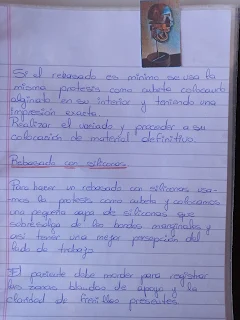 Si el rebasado es mínimo se usa la
misma protesis como cubeta colocando
alginato en su interior y teniendo una
impresión exacta.
Realizar el variado y proceder a su
colocación de material definitivo.
Rebasado con siliconas
Para hacer un rebasado con siliconas usa-
mos la protesis como cubeta y colocamos
una pequeña capa de siliconas que
sobresalga de los bordes marginales y
así tener una mejor percepción del
lado de trabajo
El paciente debe morder para registrar
las zonas blandas de apoyo y la
cantidad de frenillos presentes.